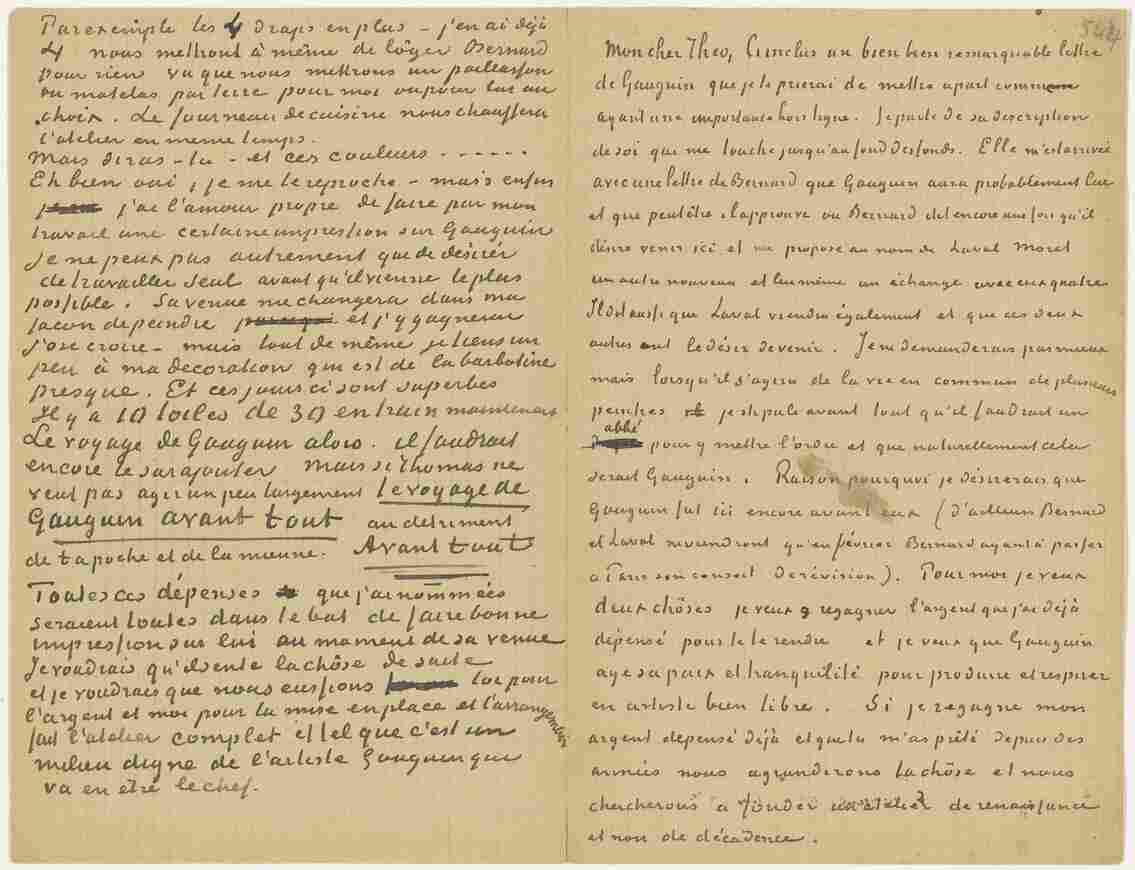 Par exemple les 4 draps en plus – j'en ai déjà
4 nous mettront à même de lôger Bernard
pour rien vu que nous mettrons un paillasson
ou matelas par terre pour moi ou pour lui au
choix. Le fourneau de cuisine nous chauffera
l'atelier en meme temps.
Mais diras-tu – et ces couleurs – – – – –
Eh bien oui, je me le reproche – mais enfin
j'ai l'amour propre de faire par mon
travail une certaine impression sur Gauguin
Je ne peux pas autrement que de désirer
de travailler seul avant qu'il vienne le plus
possible. Sa venue me changera dans ma
facon de peindre et j'y gagnerai
j'ose croire – mais tout de même je tiens un
peu à ma decoration qui est de la barbotine
presque. Et ces jours ci sont superbes
Il y a 10 toiles de 30 en train maintenant
Le voyage de Gauguin alors. il faudrait
encore le surajouter Mais si Thomas ne
veut pas agir un peu largement le voyage de
Gauguin avant tout au detriment
de ta poche et de la mienne. Avant tout
Toutes ces dépenses que j'ai nommées
seraient toutes dans le but de faire bonne
impression sur lui au moment de sa venue
Je voudrais qu'il sente la chôse de suite
et je voudrais que nous eussions toi pour
l'argent et moi pour la mise en place et l'arrangement
fait l'atelier complet et tel que c'est un
milieu digne de l'artiste Gauguin qui
va en etre le chef.
544
Mon cher Theo, Ci inclus un bien bien remarquable lettre
de Gauguin que je te prierai de mettre apart comme
ayant une importance hors ligne. Je parle de sa description
de soi qui me touche jusqu'au fond des fonds. Elle m'est arrivée
avec une lettre de Bernard que Gauguin aura probablement lue
et que peut être il approuve ou Bernard dit encore une fois qu'il
désire venir ici et me propose au nom de Laval Moret
un autre nouveau et lui même un échange avec eux quatre
Il dit aussi que Laval viendra également et que ces deux
autres ont le désir de venir. Je ne demanderais pas mieux
mais lorsqu'il s'agira de la vie en commun de plusieurs
peintres je stipule avant tout qu'il faudrait un
abbé
pour y mettre l'ordre et que naturellement cela
serait Gauguin. Raison pourquoi je désirerais que
Gauguin fut ici encore avant eux (d'ailleurs Bernard
et Laval ne viendront qu'en février Bernard ayant à passer
a Paris son conseil de révision). Pour moi je veux
deux chôses je veux regagner l'argent que j'ai déjà
dépensé pour te le rendre et je veux que Gauguin
aye sa paix et tranquilité pour produire et respirer
en artiste bien libre. Si je regagne mon
argent dépensé déjà et que tu m'as prêté depuis des
années nous agrandirons la chôse et nous
chercherons a fonder un atelier de renaissance
et non de décadence.